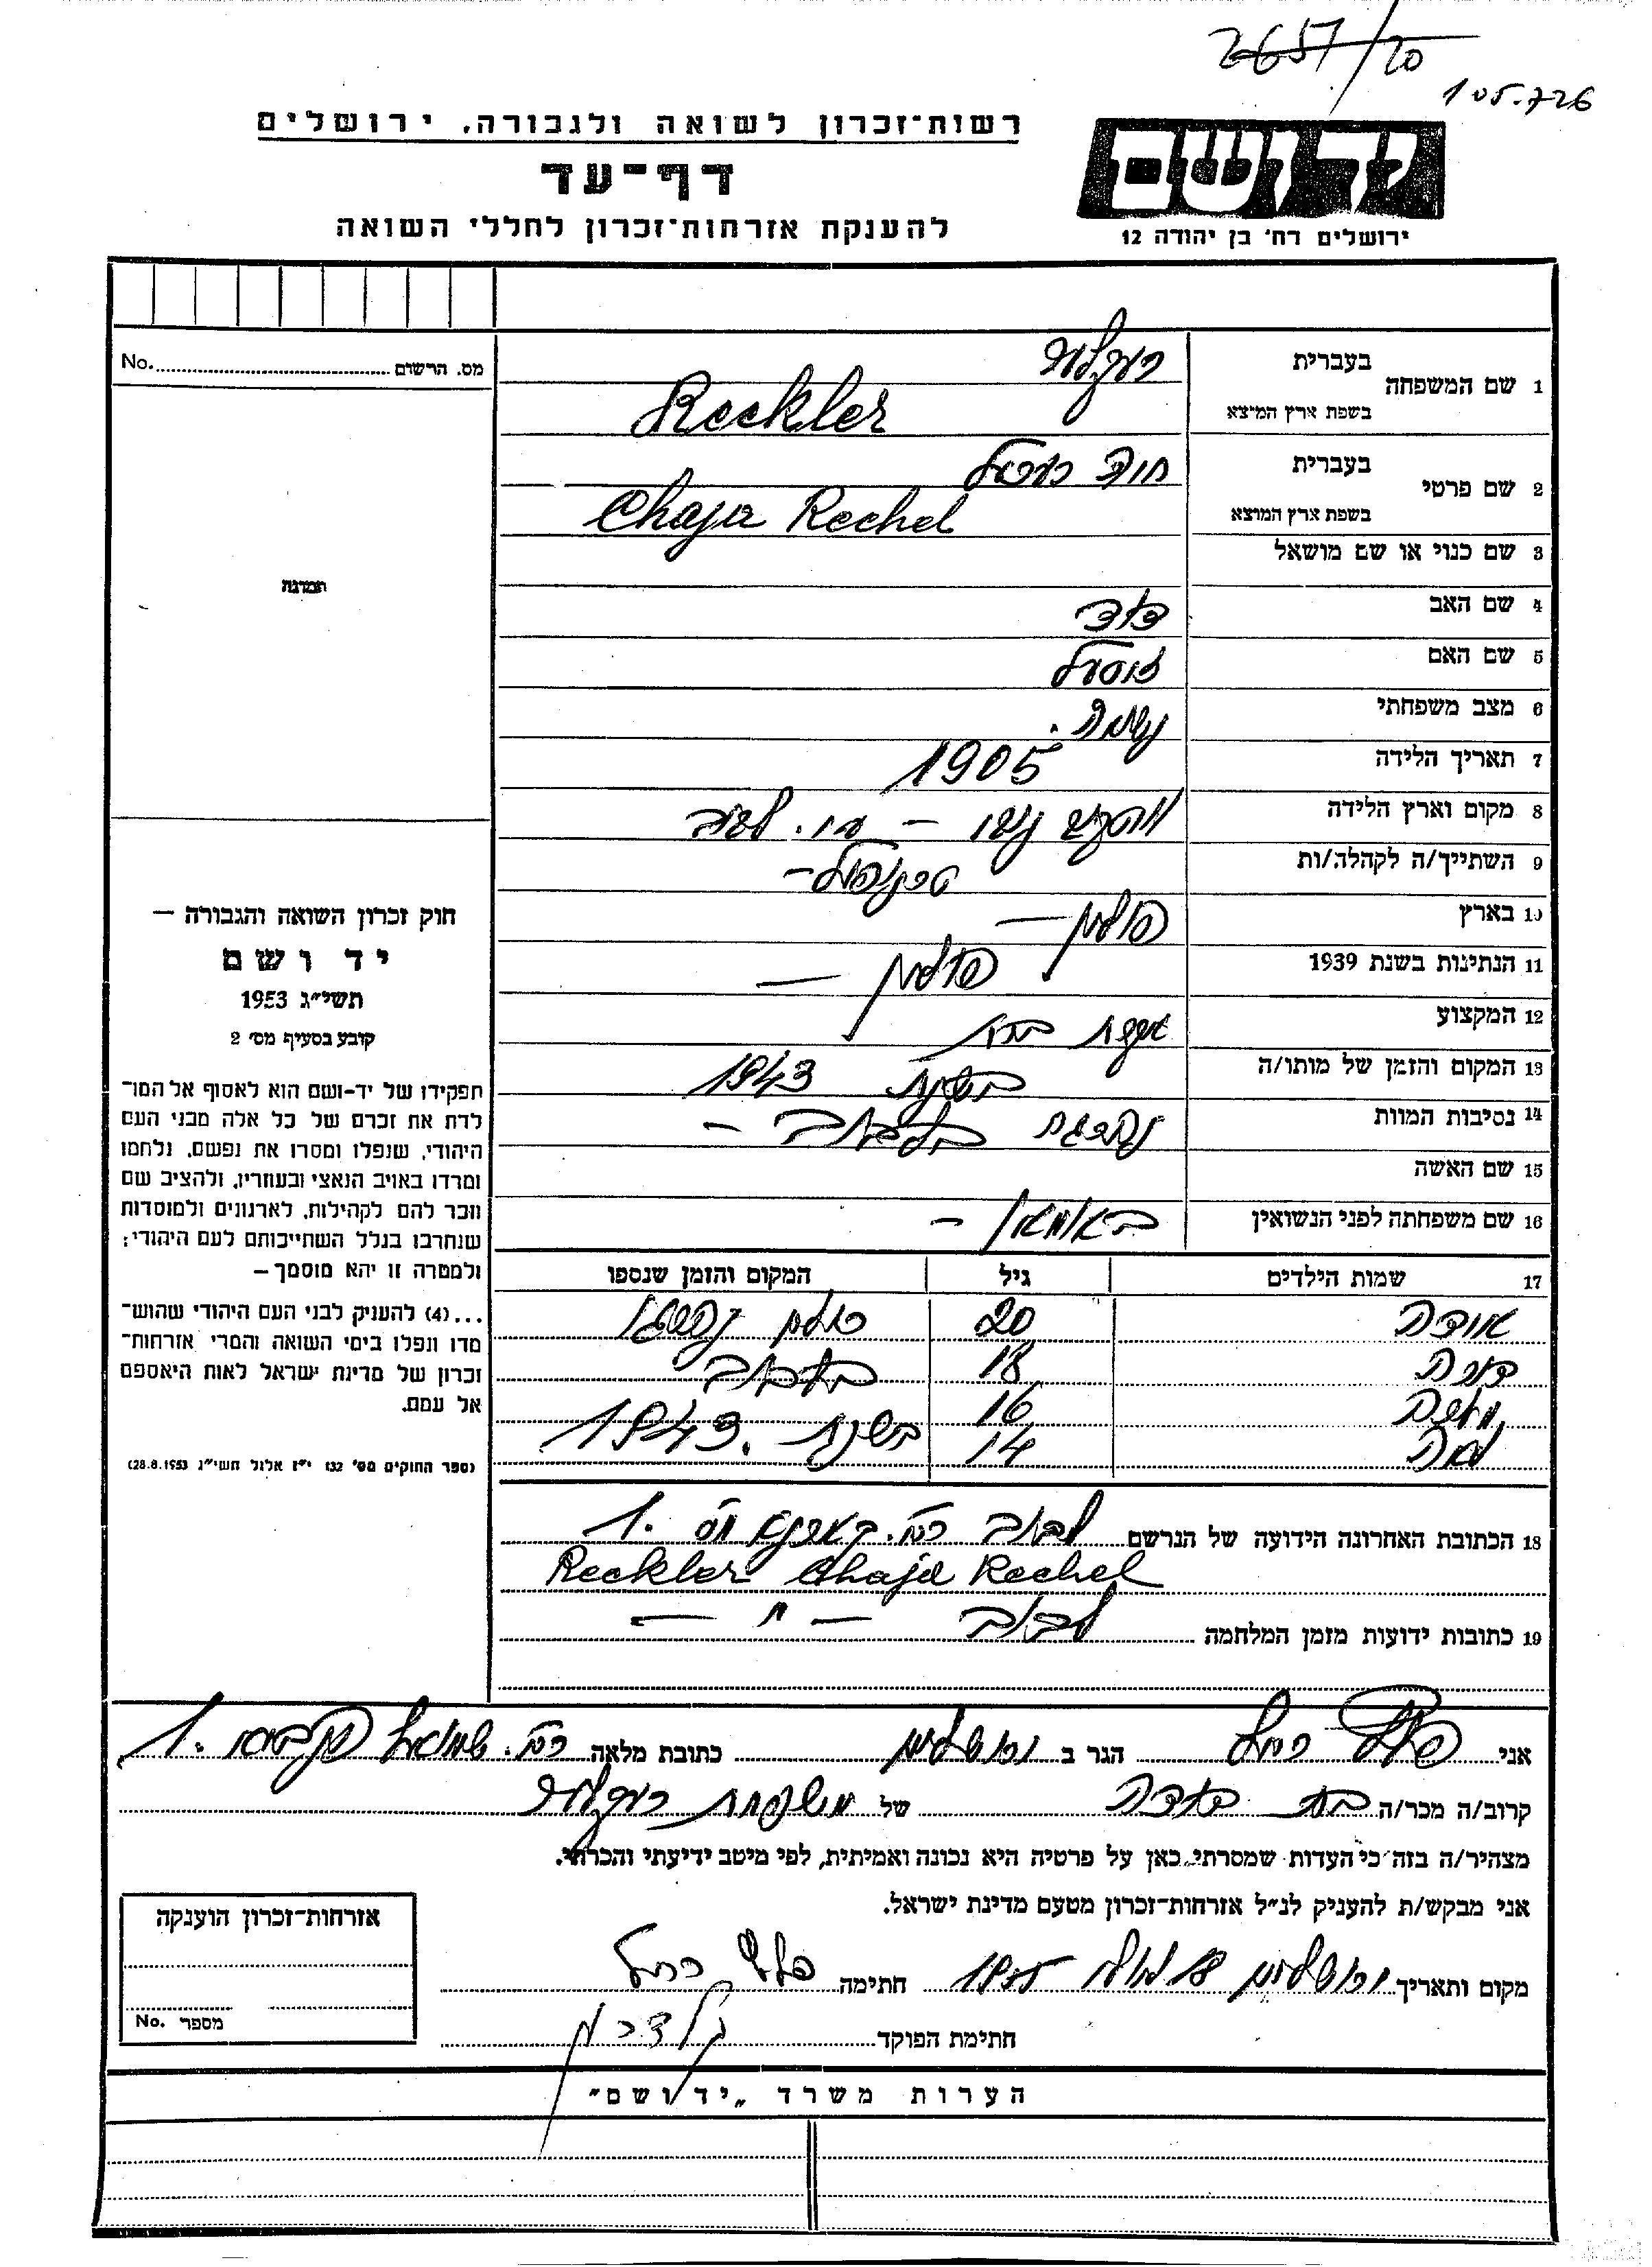 2657/20
105.726
רשות־זכרון לשואה ולגבורה, ירושלים
דף־עד
להענקת אזרחות־זכרון לחללי השואה
יד ושם
ירושלים רח' בן יהודה 12
מס. הרשום No.
תמונה
חוק זכרון השואה והגבורה —
יד ושם
תשי"ג 1953
קובע בסעיף מס' 2
תפקידו של יד-ושם הוא לאסוף אל המו־
לדת את זכרם של כל אלה מבני העם
היהודי, שנפלו ומסרו את נפשם, נלחמו
ומרדו באויב הנאצי ובעוזריו, ולהציב שם
וזכר להם לקהילות, לארגונים ולמוסדות
שנחרבו בגלל השתייכותם לעם היהודי;
ולמטרה זו יהא מוסמך —
...(4) להעניק לבני העם היהודי שהוש־
מדו ונפלו בימי השואה והמרי אזרחות־
זכרון של מדינת ישראל לאות היאספם
אל עמם.
(ספר החוקים מס' 132 י"ז אלול תשי"ג 28.8.1953)
1 שם המשפחה בעברית רעקלער
בשפת ארץ המוצא Reckler
2 שם פרטי בעברית חיה רעכעל
בשפת ארץ המוצא Chaja Rechel
3 שם כנוי או שם מושאל
4 שם האב דוד
5 שם האם
6 מצב משפחתי נשואה.
7 תאריך הלידה 1905
8 מקום וארץ הלידה
9 השתייך/ה לקהלה/ות טרנופול —
10 בארץ פולין —
11 הנתינות בשנת 1939 פולין —
12 המקצוע אשת בית
13 המקום והזמן של מותו/ה בשנת 1943
14 נסיבות המוות נהרגת בלבוב —
15 שם האשה
16 שם משפחתה לפני הנשואין באומאן —
17 שמות הילדים גיל המקום והזמן שנספו
20 כולם נהרגו
18 בלבוב
16
14 בשנת 1943.
18 הכתובת האחרונה הידועה של הנרשם לבוב רח. 1.
Reckler Chaja Rechel
19 כתובות ידועות מזמן המלחמה לבוב — " —
אני רחל הגר ב ירושלים כתובת מלאה רח. שמואל 1.
קרוב/ה מכר/ה בת דודה של משפחת רעקלער
מצהיר/ה בזה כי העדות שמסרתי כאן על פרטיה היא נכונה ואמיתית, לפי מיטב ידיעתי והכרתי.
אני מבקש/ת להעניק לנ"ל אזרחות־זכרון מטעם מדינת ישראל.
מקום ותאריך ירושלים 18 יולי 1955 חתימה רחל
חתימת הפוקד
אזרחות־זכרון הוענקה
מספר No.
הערות משרד „יד ושם"